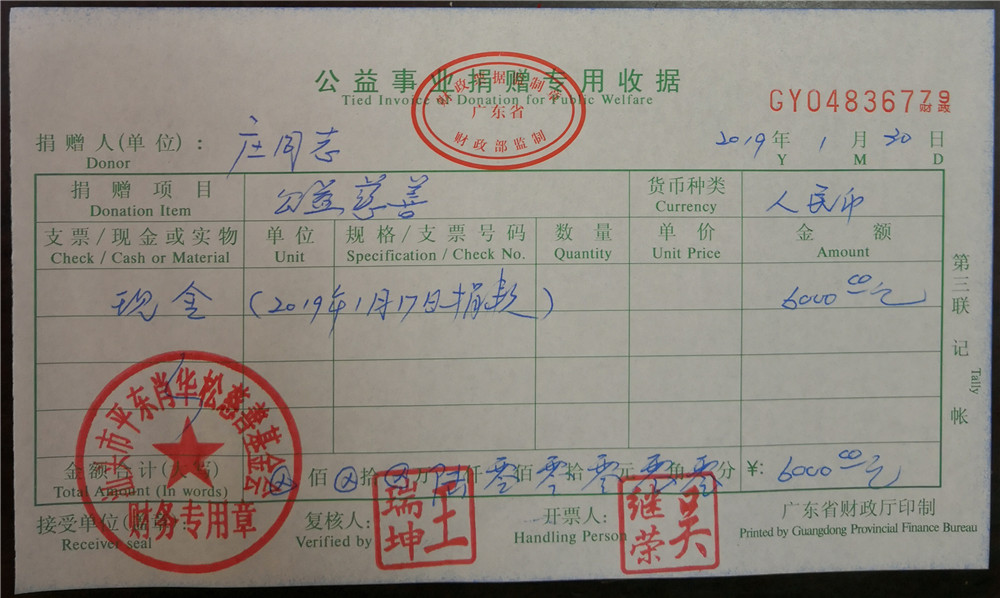 公益事业捐赠专用收据
Tied Invoice of Donation for Public Welfare
财政票据监制章
广东省
财政部监制
GY04836779
财政
捐赠人(单位): 庄同志
Donor
2019年 1月 30日
Y M D
捐赠项目 公益慈善 货币种类 人民币
Donation Item Currency
支票/现金或实物 单位 规格/支票号码 数量 单价 金额
Check / Cash or Material Unit Specification / Check No. Quantity Unit Price Amount
现金 (2019年1月17日捐款) 6000.00元
第三联 记帐
Tally
金额合计(大写) ⊗佰⊗拾⊗万陆仟零佰零拾零元零角零分 ¥: 6000.00元
Total Amount (In words)
汕头市平东肖华松慈善基金会
财务专用章
接受单位(盖章) 复核人: 王瑞坤 开票人: 吴继荣 广东省财政厅印制
Receiver seal Verified by Handling Person Printed by Guangdong Provincial Finance Bureau